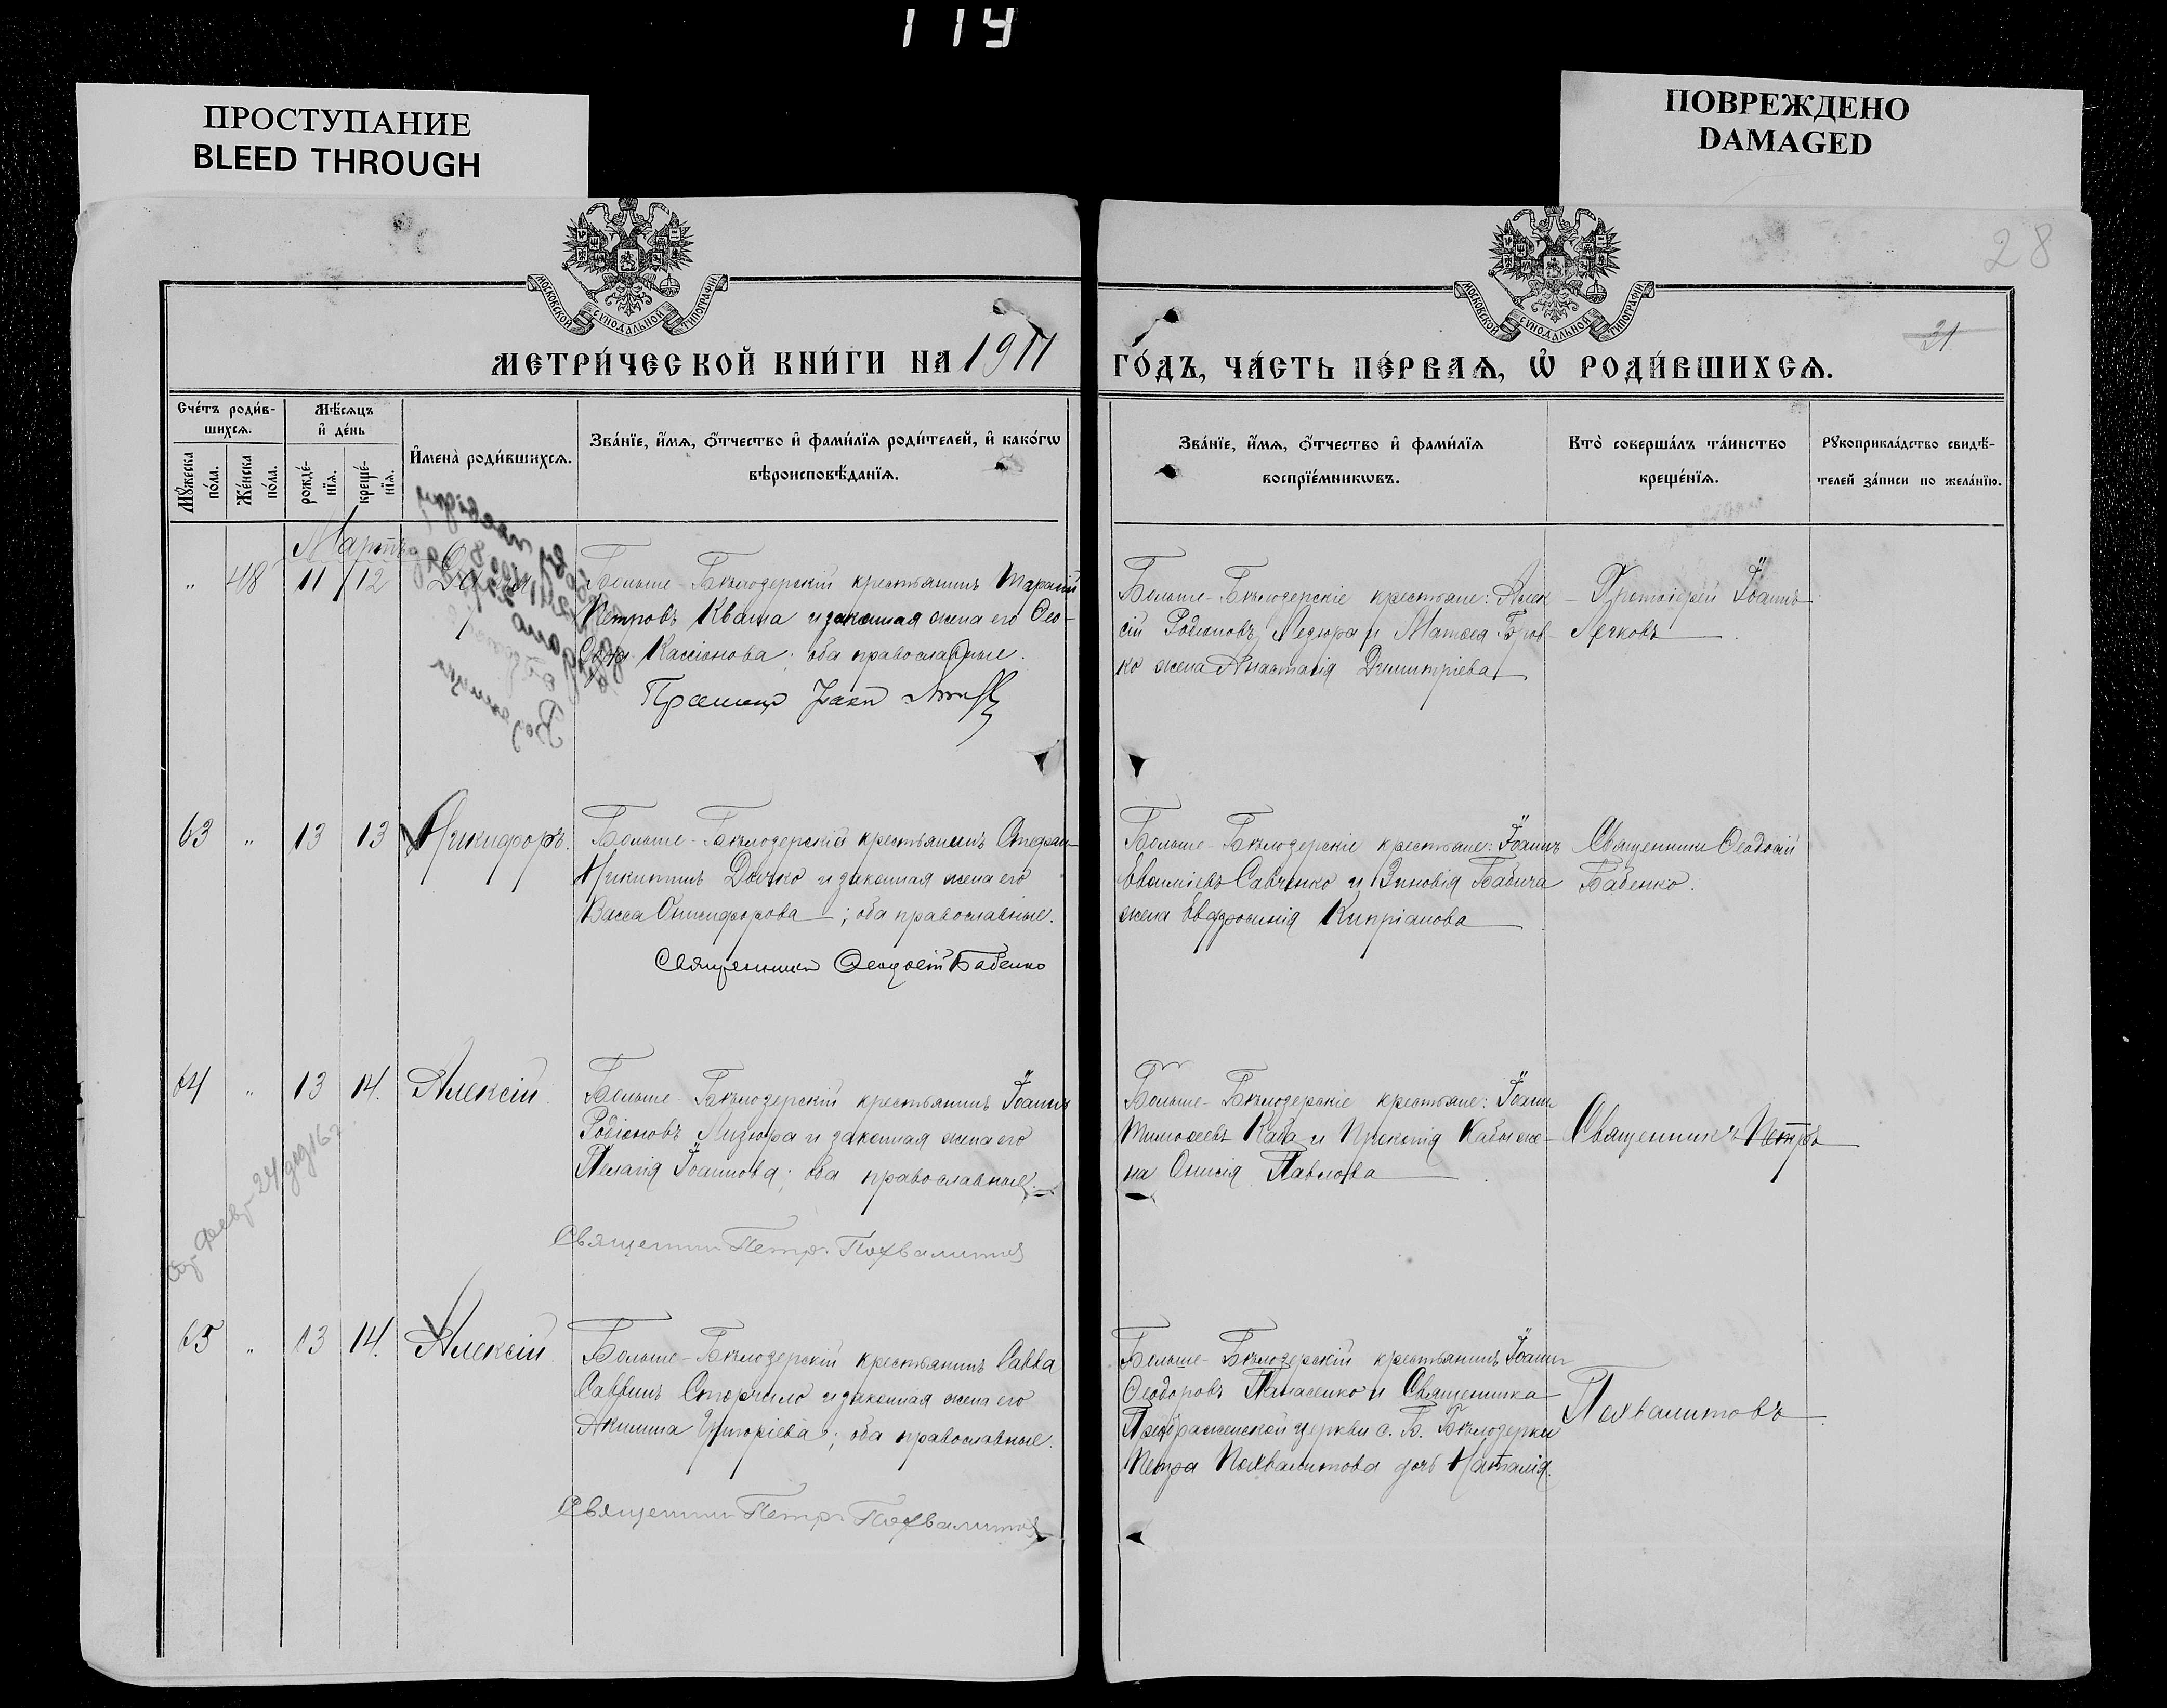 119
ПРОСТУПАНИЕ
BLEED THROUGH
ПОВРЕЖДЕНО
DAMAGED
28
МОСКОВСКОЙ СѴНОДАЛЬНОЙ ТИПОГРАФІИ
МОСКОВСКОЙ СѴНОДАЛЬНОЙ ТИПОГРАФІИ
21
МЕТРИ́ЧЕСКОЙ КНИ́ГИ НА 1911
ГО́ДЪ, ЧА́СТЬ ПЕ́РВАѦ, Ѡ҆ РОДИ́ВШИХСѦ.
Сче́тъ роди́в-
шихсѧ.
Мꙋ́жеска по́ла.
Же́нска по́ла.
Мѣ́сѧцъ
и҆ де́нь
рожде́-
нїѧ.
креще́-
нїѧ.
И҆мена̀ роди́вшихсѧ.
Зва́нїе, и҆́мѧ, ѻ҆́тчество и҆ фами́лїѧ роди́телей, и҆ како́гѡ
вѣроисповѣ́данїѧ.
Зва́нїе, и҆́мѧ, ѻ҆́тчество и҆ фами́лїѧ
воспрїе́мникѡвъ.
Кто̀ соверша́лъ та́инство
креще́нїѧ.
Рꙋкоприкла́дство свидѣ́-
телей за́писи по жела́нїю.
Мартъ
" 48 11 12
Больше-Бѣлозерскій крестьянинъ Тарасій
Петровъ Кваша и законная жена его Ѳео-
Кассіонова; оба православные.
Больше-Бѣлозерскіе крестьяне: Алек-
сій Родіоновъ Лезюра и Матѳея Бров-
ко жена Анастасія Димитріева
Протоіерей Іоаннъ
Лечковъ
63 " 13 13 Никифоръ.
Больше-Бѣлозерскій крестьянинъ Стефанъ
Никитинъ Дычко и законная жена его
Васса Онисифорова; оба православные.
Священникъ Ѳеодосій Бабенко
Больше-Бѣлозерскіе крестьяне: Іоаннъ
Евѳиміевъ Савченко и Зиновія Бабича
жена Евфросинія Кипріанова
Священникъ Ѳеодосій
Бабенко.
64 " 13 14. Алексій.
Больше-Бѣлозерскій крестьянинъ Іоаннъ
Родіоновъ Лизюра и законная жена его
Пелагія Іоаннова; оба православные.
Священник Петр Похвалитов
Больше-Бѣлозерскіе крестьяне: Іоаннъ
Тимоѳеевъ Каба и Прокопія Кабы же-
на Онисія Павлова
Священникъ Петръ
65 " 13 14. Алексій.
Больше-Бѣлозерскій крестьянинъ Савва
Саввинъ Сторчило и законная жена его
Акилина Григоріева; оба православные.
Священник Петр Похвалитов
Больше-Бѣлозерскій крестьянинъ Іоаннъ
Ѳеодоровъ Панасенко и Священника
Преображенской церкви с. Б. Бѣлозерки
Петра Похвалитова дочь Наталія.
Похвалитовъ